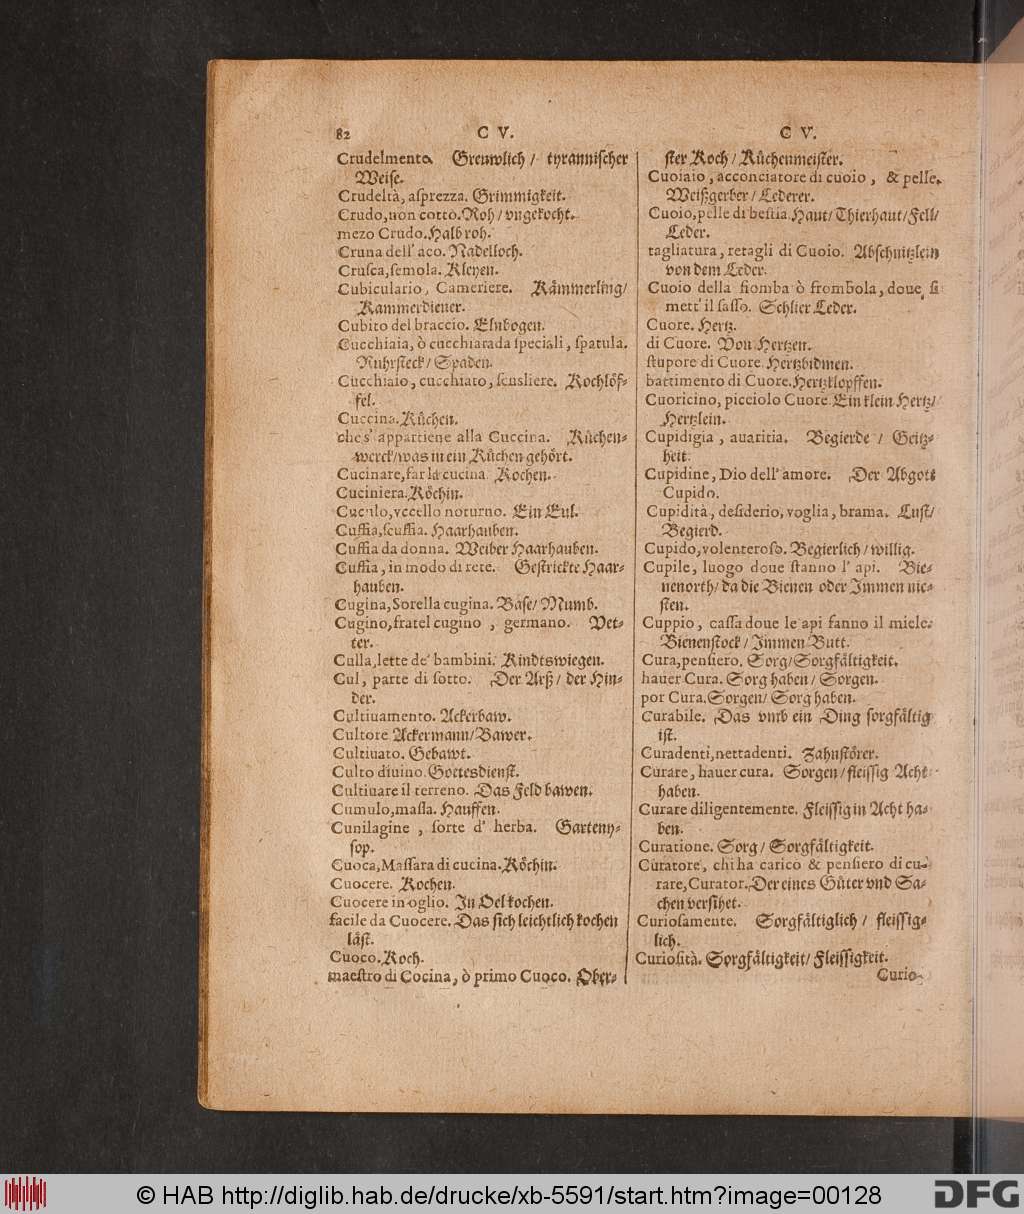 82 C V. C V.
Crudelmento. Grewlich / tyrannischer
Weise.
Crudeltà, aſprezza. Grimmigkeit.
Crudo, non cotto. Roh / vngekocht.
mezo Crudo. Halb roh.
Cruna dell' aco. Nadelloch.
Cruſca, ſemola. Kleyen.
Cubiculario, Cameriere. Kåmmerling/
Kammerdiener.
Cubito del braccio. Elnbogen.
Cucchiaia, ò cucchiara da ſpeciali, ſpatula.
Ruhrsteck / Spaden.
Cucchiaio, cucchiato, Kochlöf-
fel.
Cuccina. Kůchen.
che s' appartiene alla Cuccina. Kůchen-
werck/was in ein Kůchen gehört.
Cucinare, far la cucina. Kochen.
Cuciniera. Köchin.
Cuculo, vccello noturno. Ein Eul.
Cuffia, ſcuffia. Haarhauben.
Cuffia da donna. Weiber Haarhauben.
Cuffia, in modo di rete. Gestrickte Haar-
hauben.
Cugina, Sorella cugina. Båse/ Mumb.
Cugino, fratel cugino, germano. Vet-
ter.
Culla, lette de' bambini. Kindtswiegen.
Cul, parte di ſotto. Der Arß / der Hin-
der.
Cultiuamento. Ackerbaw.
Cultore Ackermann/Bawer.
Cultiuato. Gebawt.
Culto diuino. Gottesdienst.
Cultiuare il terreno. Das Feld bawen.
Cumulo, maſſa. Hauffen.
Cunilagine, ſorte d' herba. Garteny-
sop.
Cuoca, Maſſara di cucina. Köchin.
Cuocere. Kochen.
Cuocere in oglio. In Oel kochen.
facile da Cuocere. Das sich leichtlich kochen
låst.
Cuoco. Koch.
maeſtro di Cocina, ò primo Cuoco. Ober-
ster Koch / Kůchenmeister.
Cuoiaio, acconciatore di cuoio, & pelle.
Weißgerber / Lederer.
Cuoio, pelle di beſtia. Haut/ Thierhaut/Fell/
Leder.
tagliatura, retagli di Cuoio. Abschnitzlein
von dem Leder.
Cuoio della fiomba ò frombola, doue ſi
mett' il ſaſſo. Schlier Leder.
Cuore. Hertz.
di Cuore. Von Hertzen.
ſtupore di Cuore. Hertzbidmen.
battimento di Cuore. Hertzklopffen.
Cuoricino, picciolo Cuore. Ein klein Hertz/
Hertzlein.
Cupidigia, auaritia. Begierde / Geitz-
heit.
Cupidine, Dio dell' amore. Der Abgott
Cupido.
Cupidità, deſiderio, voglia, brama. Lust/
Begierd.
Cupido, volenteroſo. Begierlich / willig.
Cupile, luogo doue ſtanno l' api. Bie-
nenorth/ da die Bienen oder Immen nie-
sten.
Cuppio, caſſa doue le api fanno il miele.
Bienenstock / Immen Butt.
Cura, penſiero. Sorg/Sorgfåltigkeit.
hauer Cura. Sorg haben / Sorgen.
por Cura. Sorgen/ Sorg haben.
Curabile. Das vmb ein Ding sorgfåltig
ist.
Curadenti, nettadenti. Zahnstörer.
Curare, hauer cura. Sorgen / fleissig Acht
haben.
Curare diligentemente. Fleissig in Acht ha-
ben.
Curatione. Sorg / Sorgfåltigkeit.
Curatore, chi ha carico & penſiero di cu-
rare, Curator. Der eines Gůter vnd Sa-
chen versihet.
Curioſamente. Sorgfåltiglich / fleissig-
lich.
Curioſità. Sorgfåltigkeit/ Fleissigkeit.
Curio-
© HAB http://diglib.hab.de/drucke/xb-5591/start.htm?image=00128
DFG